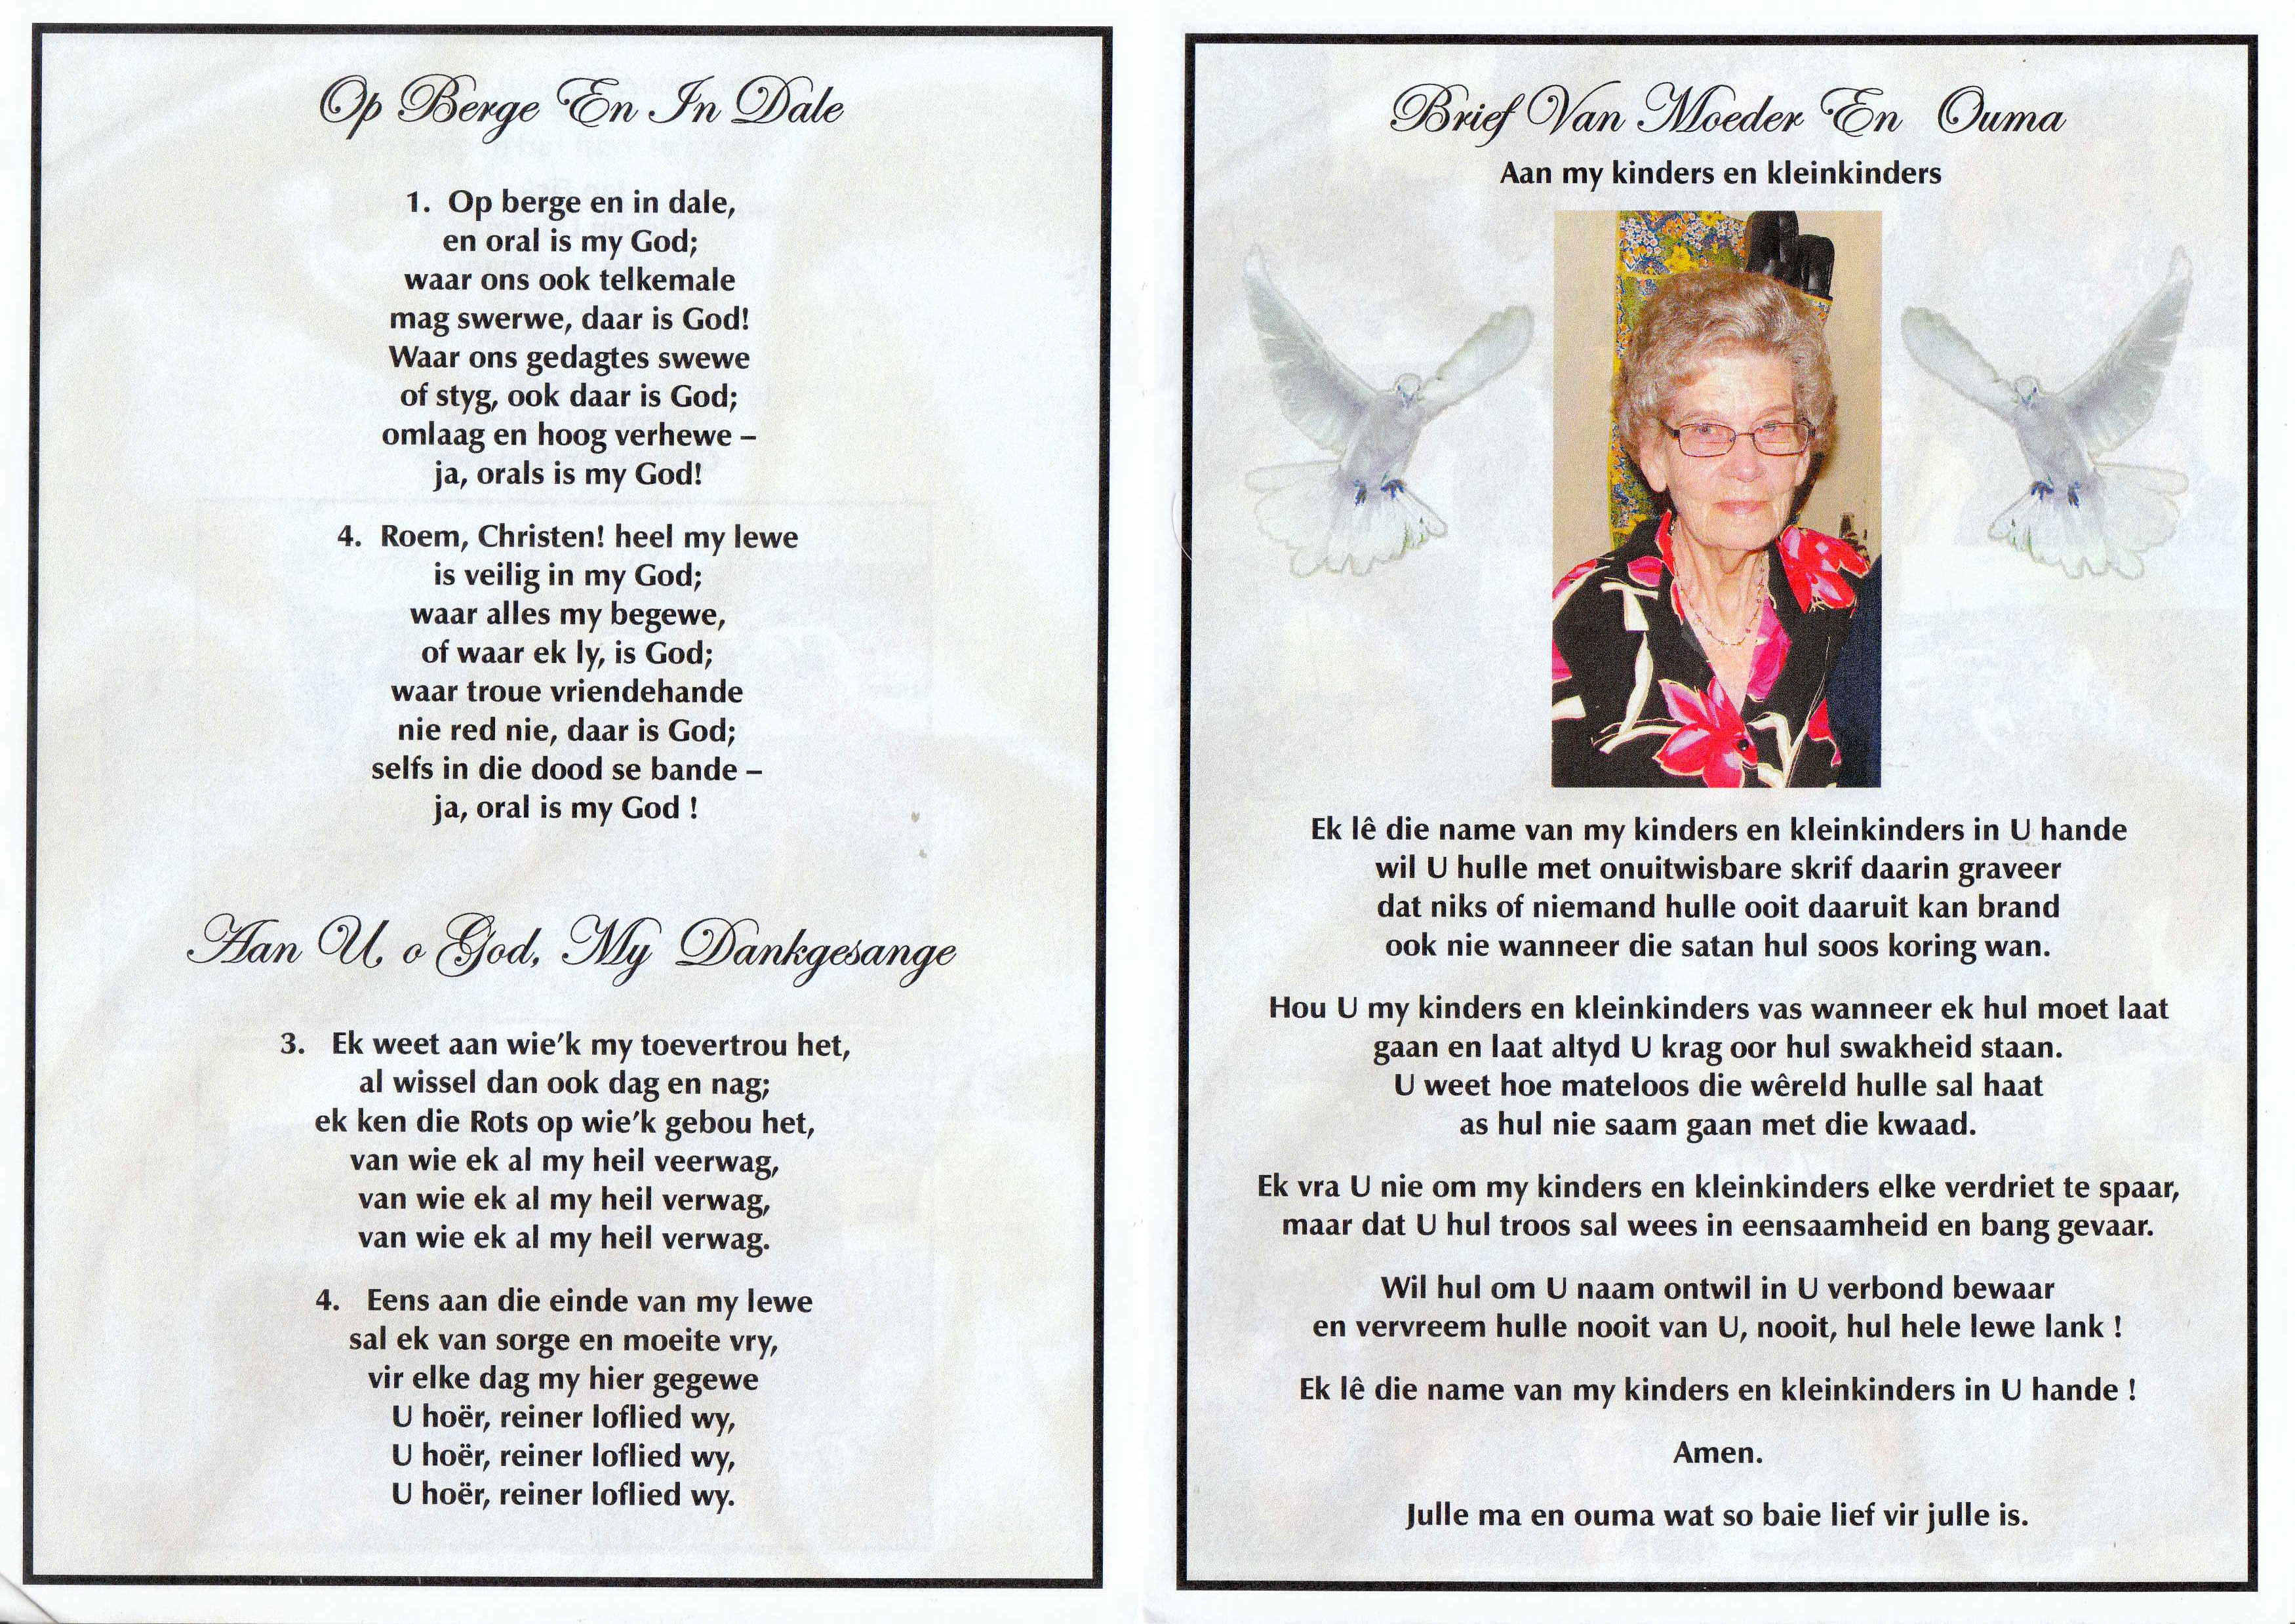 Op Berge En In Dale
1. Op berge en in dale,
en oral is my God;
waar ons ook telkemale
mag swerwe, daar is God!
Waar ons gedagtes swewe
of styg, ook daar is God;
omlaag en hoog verhewe –
ja, orals is my God!
4. Roem, Christen! heel my lewe
is veilig in my God;
waar alles my begewe,
of waar ek ly, is God;
waar troue vriendehande
nie red nie, daar is God;
selfs in die dood se bande –
ja, oral is my God !
Aan U, o God, My Dankgesange
3. Ek weet aan wie’k my toevertrou het,
al wissel dan ook dag en nag;
ek ken die Rots op wie’k gebou het,
van wie ek al my heil veerwag,
van wie ek al my heil verwag,
van wie ek al my heil verwag.
4. Eens aan die einde van my lewe
sal ek van sorge en moeite vry,
vir elke dag my hier gegewe
U hoër, reiner loflied wy,
U hoër, reiner loflied wy,
U hoër, reiner loflied wy.
Brief Van Moeder En Ouma
Aan my kinders en kleinkinders
Ek lê die name van my kinders en kleinkinders in U hande
wil U hulle met onuitwisbare skrif daarin graveer
dat niks of niemand hulle ooit daaruit kan brand
ook nie wanneer die satan hul soos koring wan.
Hou U my kinders en kleinkinders vas wanneer ek hul moet laat
gaan en laat altyd U krag oor hul swakheid staan.
U weet hoe mateloos die wêreld hulle sal haat
as hul nie saam gaan met die kwaad.
Ek vra U nie om my kinders en kleinkinders elke verdriet te spaar,
maar dat U hul troos sal wees in eensaamheid en bang gevaar.
Wil hul om U naam ontwil in U verbond bewaar
en vervreem hulle nooit van U, nooit, hul hele lewe lank !
Ek lê die name van my kinders en kleinkinders in U hande !
Amen.
Julle ma en ouma wat so baie lief vir julle is.